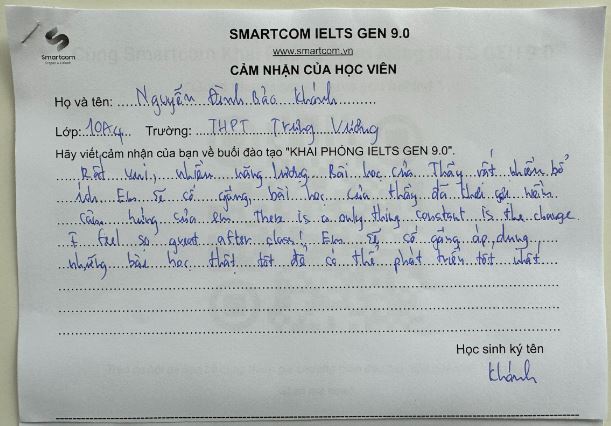 SMARTCOM IELTS GEN 9.0
www.smartcom.vn
Smartcom
CẢM NHẬN CỦA HỌC VIÊN
Họ và tên: Nguyễn Đình Bảo Khánh
Lớp: 10A4 Trường: THPT Trưng Vương
Hãy viết cảm nhận của bạn về buổi đào tạo "KHAI PHÓNG IELTS GEN 9.0".
Rất vui, nhiều năng lượng. Bài học của Thầy rất nhiều bổ
ích. Em sẽ cố gắng, bài học của thầy đã
cảm hứng của em. There is a only thing constant is the change.
I feel so great after class! Em sẽ cố gắng áp dụng
những bài học thật tốt để có thể phát triển tốt nhất
Học sinh ký tên
Khánh